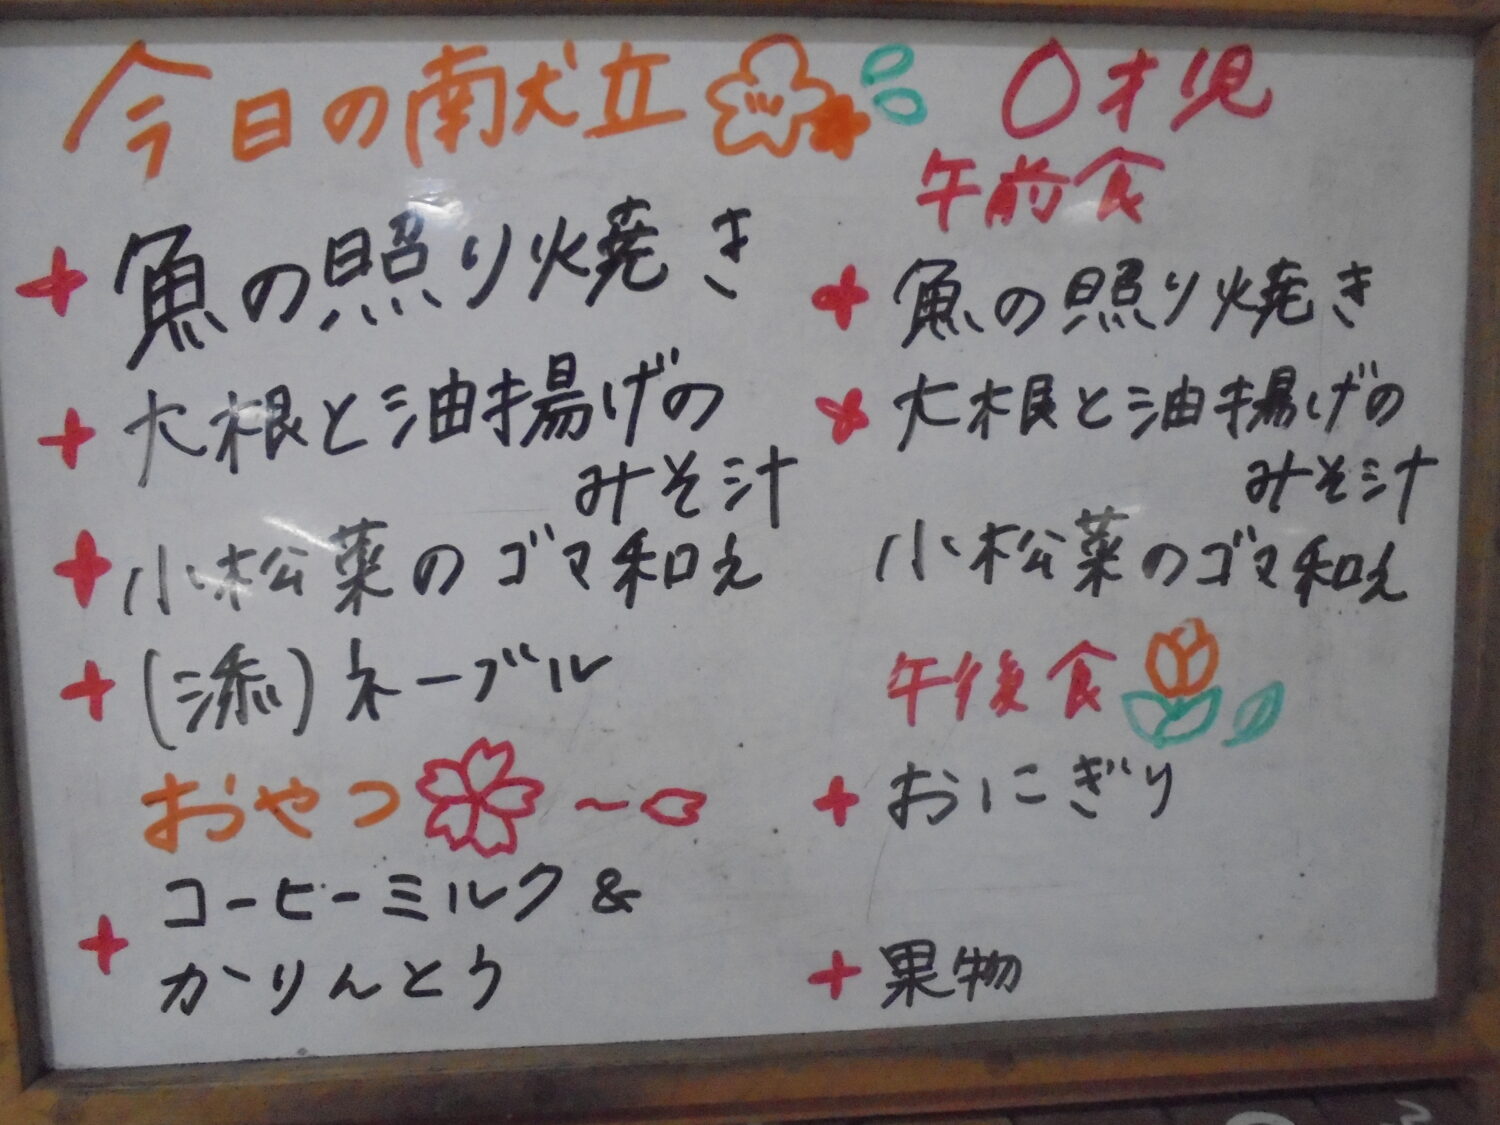 今日の献立
魚の照り焼き
大根と油揚げの
みそ汁
小松菜のゴマ和え
(添)ネーブル
おやつ
コーヒーミルク&
かりんとう
0才児
午前食
魚の照り焼き
大根と油揚げの
みそ汁
小松菜のゴマ和え
午後食
おにぎり
果物